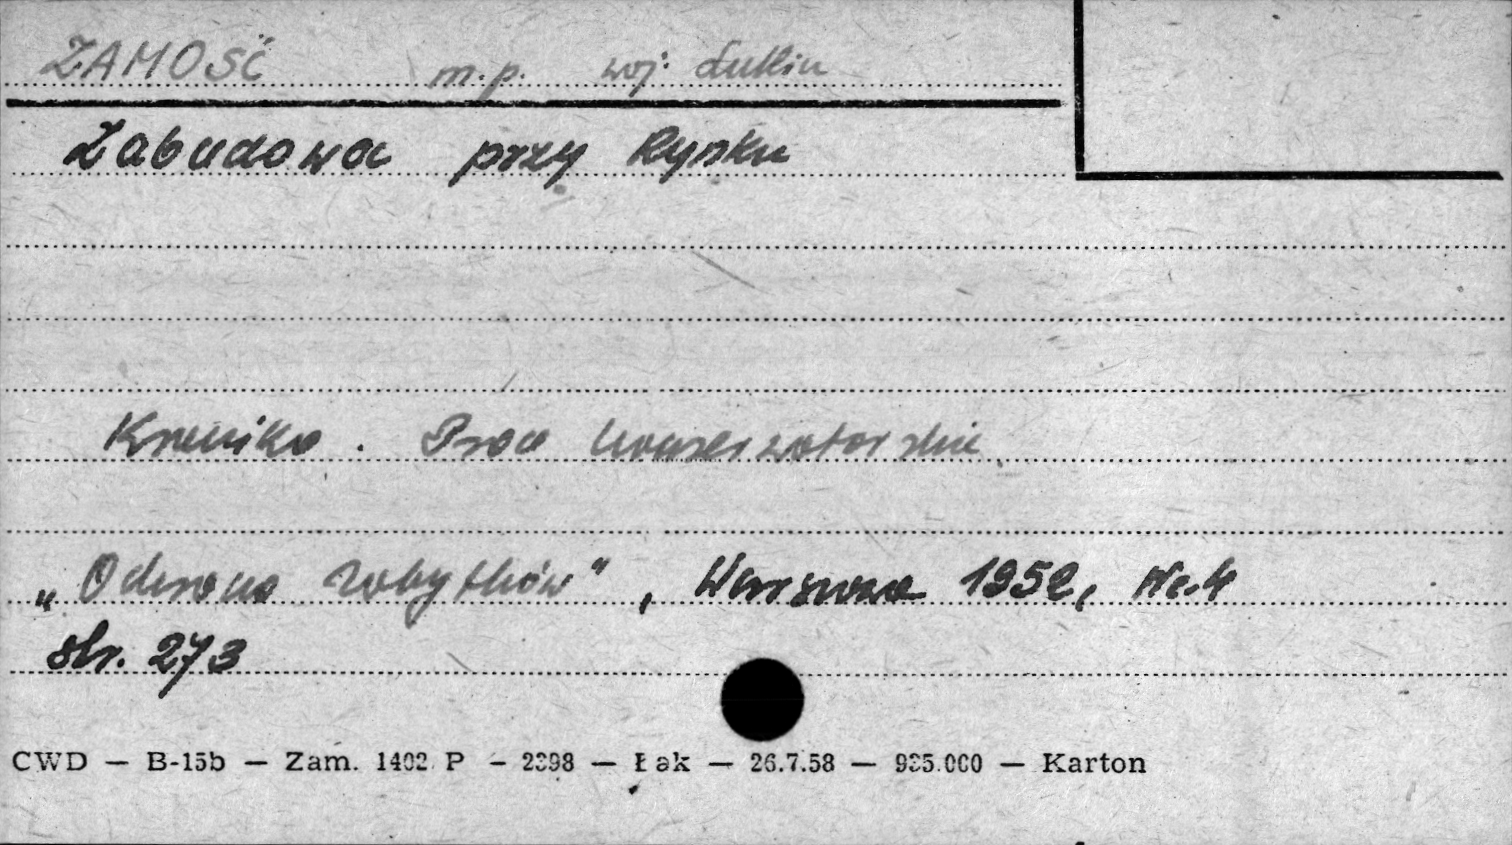 ZAMOŚĆ m.p. woj. Lublin
Zabudowa przy Rynku
Kronika. Prace konserwatorskie
„Ochrona Zabytków”, Warszawa 1952, Nr. 4
str. 273
CWD — B-15b — Zam. 1402 P — 2398 — Łak — 26.7.58 — 935.000 — Karton